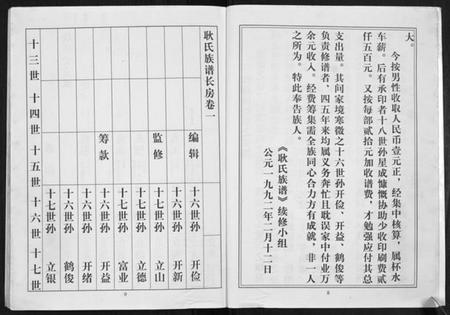 大。
今按男性收取人民币壹元正，经集中核算，属杯水
车薪。后有承印者十八世孙星成慷慨协助少收印刷费贰
仟五百元。又按每部贰拾元加收谱费，才勉强应付其总
支出量。其间家境寒微之十六世孙开俭、开益、鹤俊等
负责修谱者，四五年来均属义务奔忙且耽误家中付业万
余元收入。经费筹集需全族同心合力方有成就，非一人
之所为。特此奉告族人。
《耿氏族谱》续修小组
公元一九九二年二月十二日
8
耿氏族谱长房卷一
编辑 十六世孙 开俭
十六世孙 开新
监修 十七世孙 立山
十七世孙 立德
十七世孙 富业
筹款 十六世孙 开益
十六世孙 开绪
十六世孙 鹤俊
十七世孙 立银
十三世 十四世 十五世 十六世 十七世
9